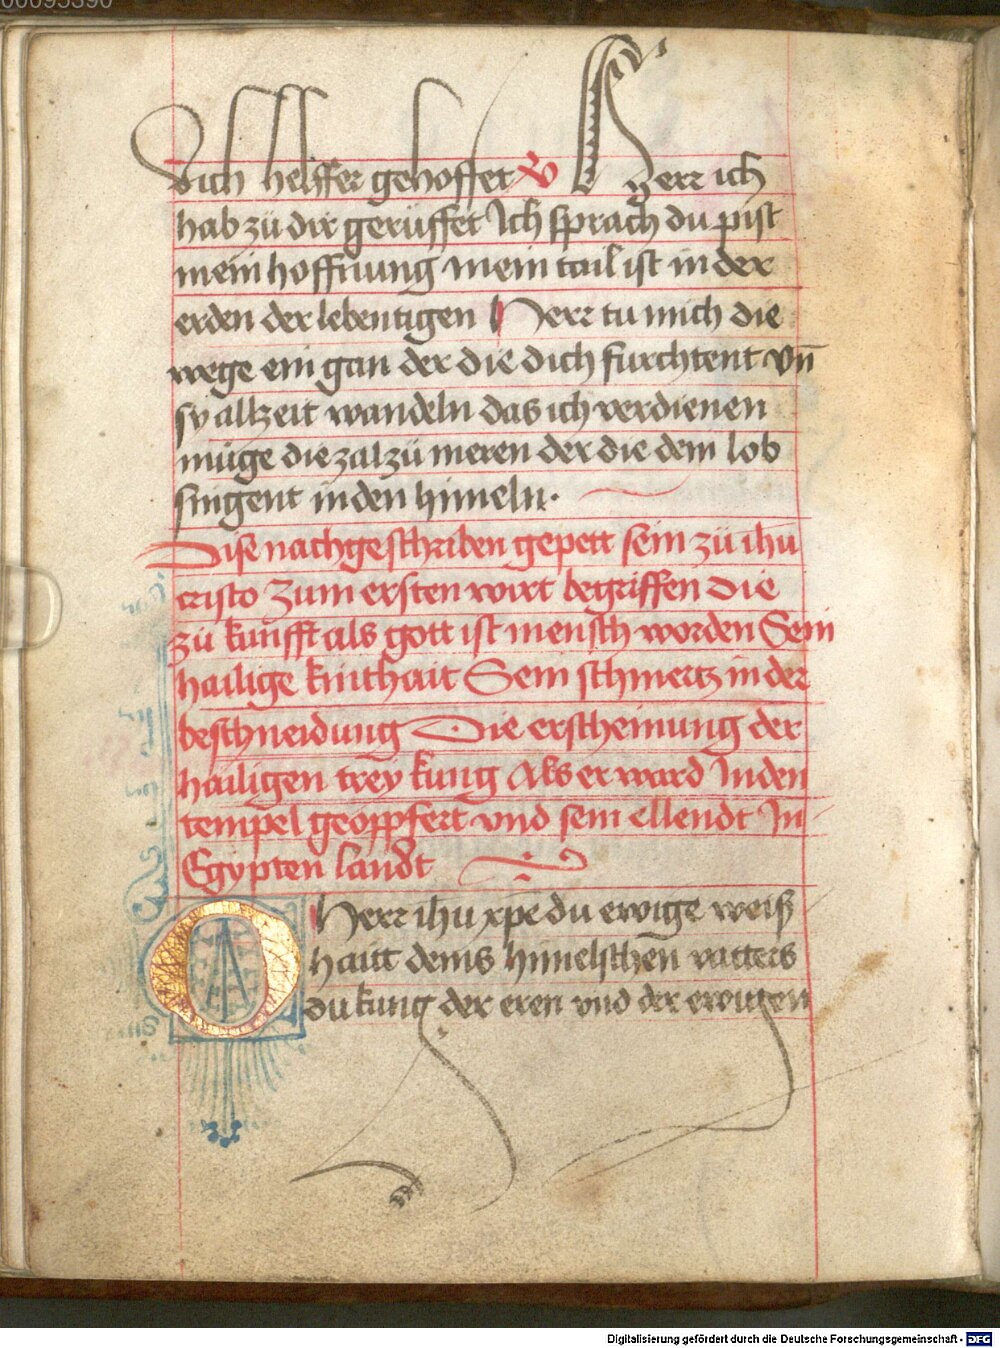 00095390
dich helffer gehoffet V Herr ich
hab zü dir gerüffet Ich sprach du pist
mein hoffnung mein tail ist in der
erden der lebentigen Herr tu mich die
wege ein gan der die dich furchtent vn̄
sy allzeit wandeln das ich verdienen
müge die zal zü meren der die dem lob
singent in den himeln.
Dise nachgeschriben gepett sein zü ihu
cristo Zum ersten wirt begriffen die
zü kunfft als gott ist mensch worden Sein
hailige kinthait Sein schmertz in der
beschneidung Die erscheinung der
hailigen trey kung Als er ward In den
tempel geopffert vnd sein ellendt In
Egypten landt
O Herr ihu xpe du ewige weiß
haitt deins himelschen vatters
du kung der eren vnd der ewigen
Digitalisierung gefördert durch die Deutsche Forschungsgemeinschaft - DFG